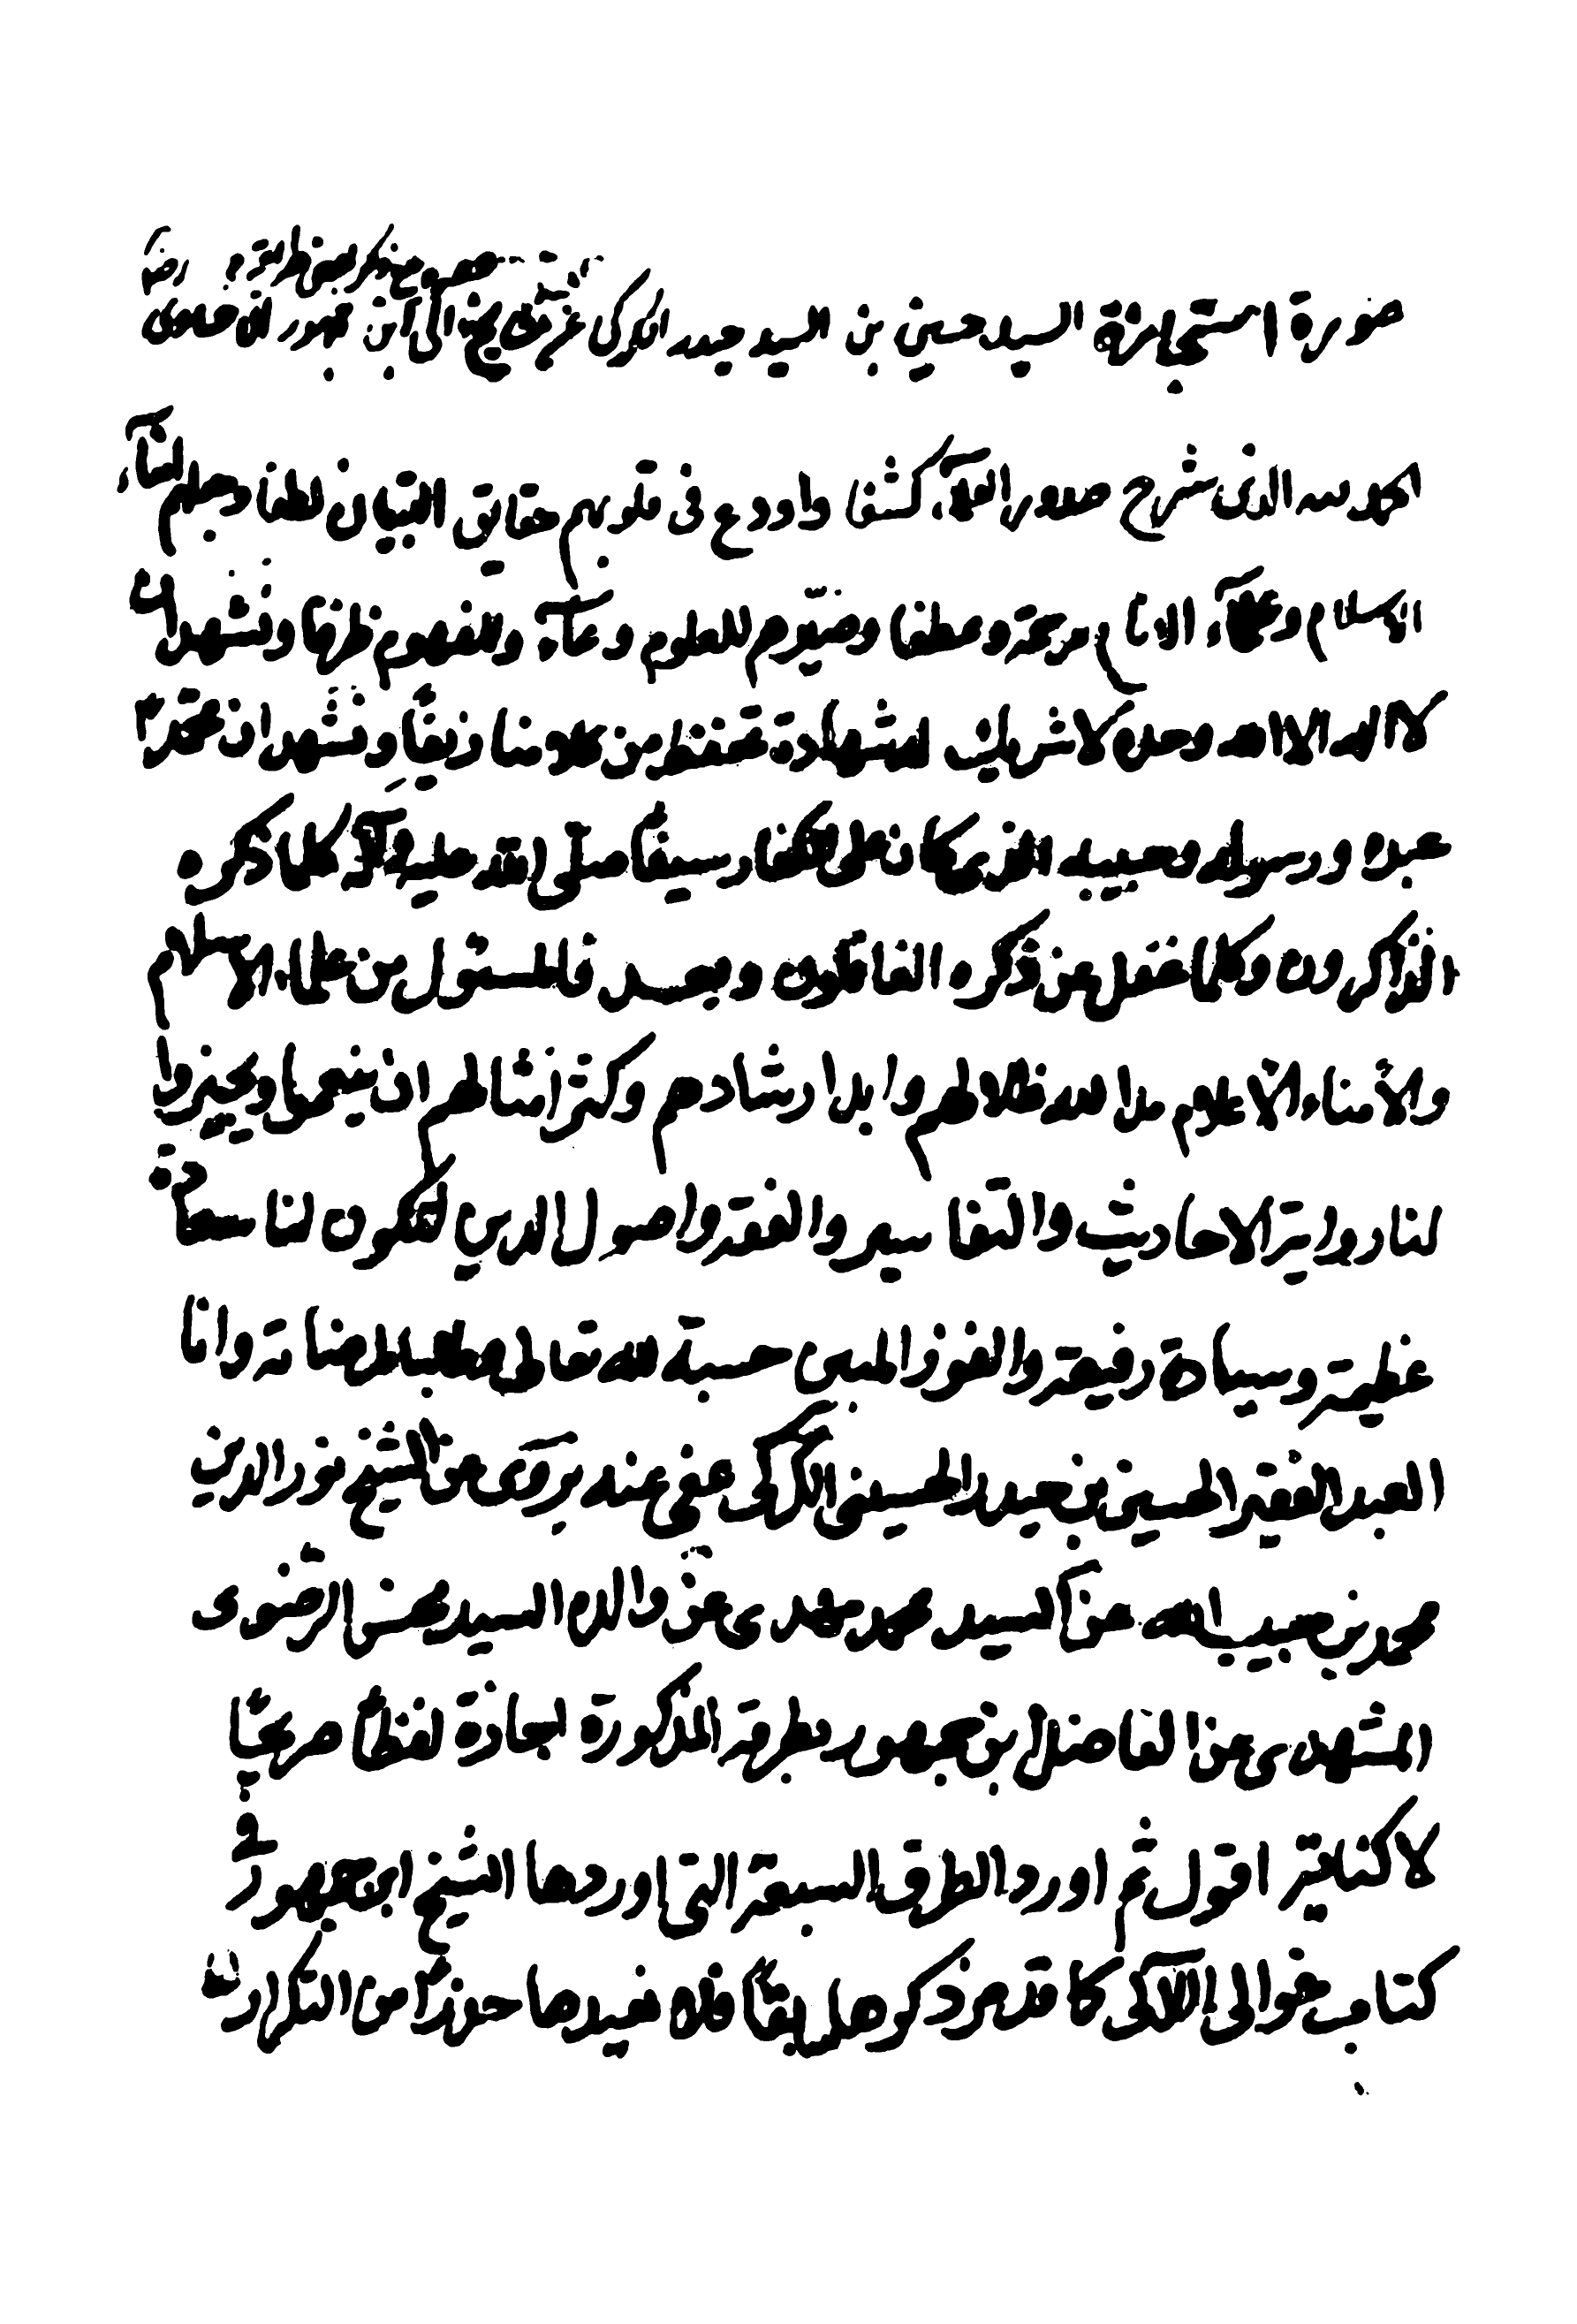 صورة استجازة السيد حسين بن السيد حيدر الكركي عن
الحمد لله الذي شرح صدور العلماء كشفا واودع في قلوبهم حقايق التبيان لطفا وجعلهم امناء
الاسلام ودعاة الانام مرحمة وعطفا وصيرهم للعلوم وعاء وللفهوم ظرفا ونشهد ان
لا اله الا الله وحده لا شريك له شهادة من علومنا ونشهد ان محمدا
عبده ورسوله وحبيبه الذي كان على سيفا صلى الله عليه وآله كلما ذكره
الذاكرون وكلما غفل عن ذكره الغافلون وبعد فالمسئول من علماء الاسلام
والأمناء الأعلام مد الله ظلالهم وابد ارشادهم وكثر امثالهم ان ينعموا ويجيزوا
لنا رواية الاحاديث والتفاسير والفقه واصول الدين لتكون لنا سعادة
عظيمة وسيادة رفيعة والفوز المبين حسبة لله تعالى وطلبا لمرضاته وانا
العبد الفقير الحسين بن حيدر الحسيني الكركي عفي عنه يروى عن الشيخ نور الدين
محمد بن حبيب الله عن السيد محمد مهدى عن والده السيد محسن الرضوى
المشهدى عن الفاضل ابن جمهور بطرقه المذكورة اجازة لفظا صريحا
لا كناية اقول ثم اورد الطرق السبعة التي اوردها الشيخ ابن جمهور في
كتاب غوالي اللآلي كما قد مر ذكرها سابقا فلا نعيدها حذرا من التكرار